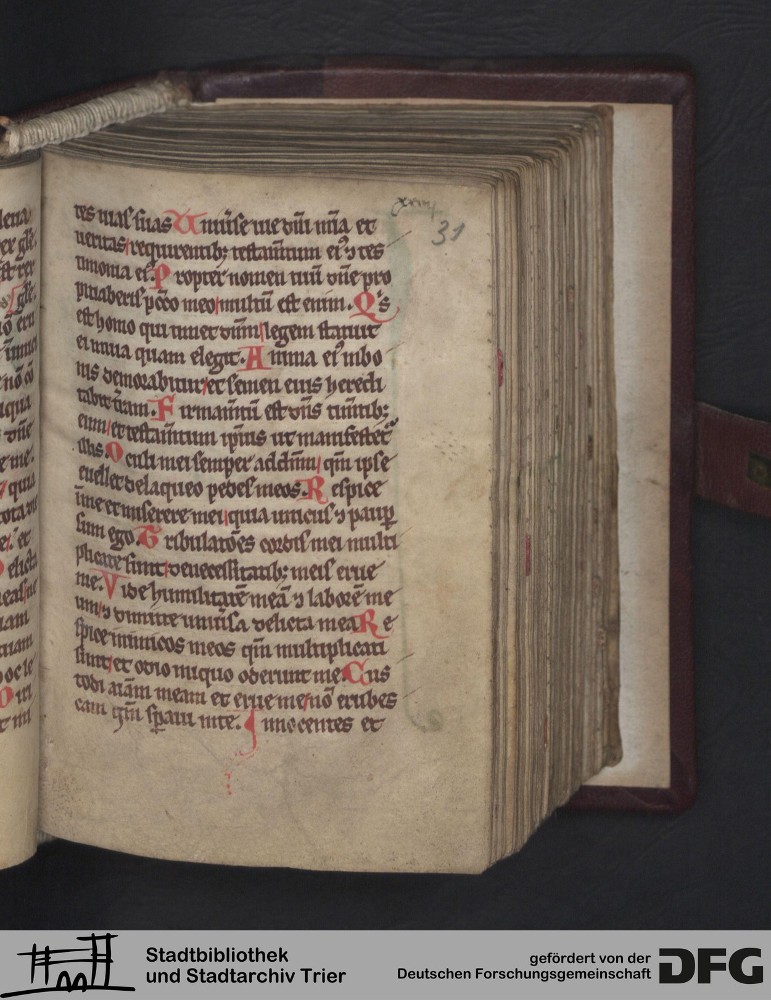 xxxi
31
tes uias suas U niu̾se uie dn̄i mīa et
ueritas requirentib; testam̄tum ei⁹ ⁊ tes
timonia ei⁹. P ropter nomen tuū dn̄e pro
piciaberis pc̄co meo multū est enim. Q's
est homo qui timet dn̄m legem statuit
ei in uia quam elegit. A nima ei⁹ in bo
nis demorabitur et semen eius heredi
tabit t̾ram. F irmam̄tū est dn̄s tim̄tib;
eum et testam̄tum ipsius ut manifestet̾
illis. O culi mei semper ad dn̄m qm̄ ipse
euellet de laqueo pedes meos. R espice
in me et miserere mei quia unicus ⁊ paup̲
sum ego. T ribulatōes cordis mei multi
plicate sunt de necessitatib; meis erue
me. V ide humilitatē meā ⁊ laborē me
um ⁊ dimitte uniu̾sa delicta mea R e
spice inimicos meos qm̄ multiplicati
sunt et odio iniquo oderunt me. C us
todi aīam meam et erue me nō erubes
cam qm̄ sp̲aui in te. I nnocentes et
Stadtbibliothek
und Stadtarchiv Trier
gefördert von der
Deutschen Forschungsgemeinschaft
DFG